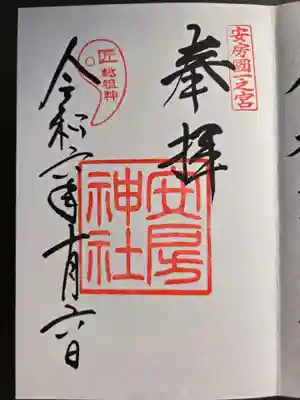 安房國一之宮
奉拝
安房
神社
匠総祖神
令和六年十月六日